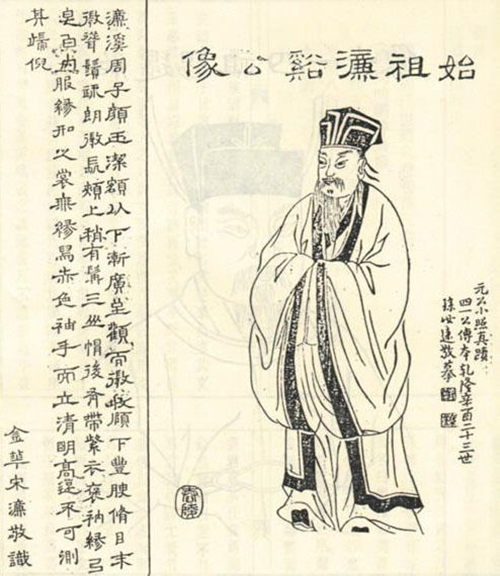 始祖濂谿公像
元公小照真蹟
四一公傳本乾隆辛酉二十三世
孫必達敬摹
濂溪周子顏玉潔額以下漸廣至顴而微收頤下豐腴脩目末
微聳鬚疎朗微長頰上稍有髯三山帽後有帶紫衣褒袖緣以
皂白內服緣如之裳無緣舄赤色袖手而立清明高遠不可測
其端倪
金華宋濂敬識